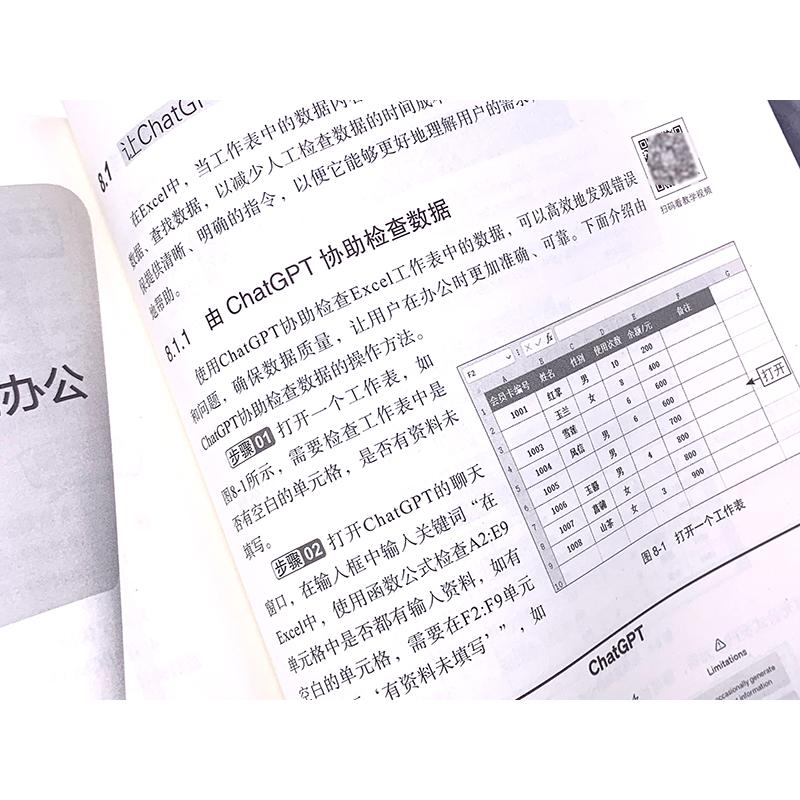 办公
8.1 让ChatG
在Excel中,当工作表中的数据内容
数据、查找数据,以减少人工检查数据的时间成本
保提供清晰、明确的指令,以便它能够更好地理解用户的需求
地帮助。
扫码看教学视频
8.1.1 由 ChatGPT 协助检查数据
使用ChatGPT协助检查Excel工作表中的数据,可以高效地发现错误
和问题,确保数据质量,让用户在办公时更加准确、可靠。下面介绍由
ChatGPT协助检查数据的操作方法。
步骤01 打开一个工作表,如
图8-1所示,需要检查工作表中是
否有空白的单元格,是否有资料未
填写。
步骤02 打开ChatGPT的聊天
窗口,在输入框中输入关键词“在
Excel中,使用函数公式检查A2:E9
单元格中是否都有输入资料,如有
空白的单元格,需要在F2:F9单元
‘有资料未填写’”,如
F2 fx
A B C D E F G
1 会员卡编号 姓名 性别 使用次数 余额/元 备注
1001 红掌 男 10 200
玉兰 女 8 400
1003 雪莲 6 600
1004 风信 男 6 600
1005 男 700
1006 玉簪 男 4 800
1007 菖蒲 女 800
1008 山茶 女 3 900
10
打开
图 8-1 打开一个工作表
ChatGPT
Limitations
occasionally generate
information